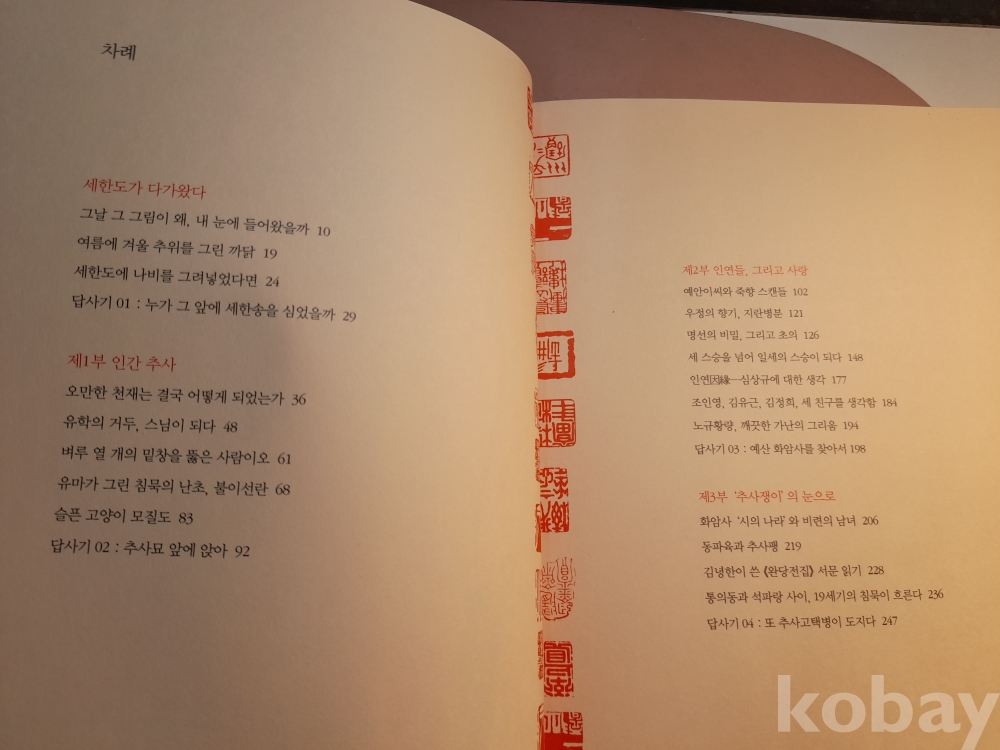 차례
세한도가 다가왔다
그날 그 그림이 왜, 내 눈에 들어왔을까 10
여름에 겨울 추위를 그린 까닭 19
세한도에 나비를 그려넣었다면 24
답사기 01 : 누가 그 앞에 세한송을 심었을까 29
제1부 인간 추사
오만한 천재는 결국 어떻게 되었는가 36
유학의 거두, 스님이 되다 48
벼루 열 개의 밑창을 뚫은 사람이오 61
유마가 그린 침묵의 난초, 불이선란 68
슬픈 고양이 모질도 83
답사기 02 : 추사묘 앞에 앉아 92
제2부 인연들, 그리고 사랑
예안이씨와 죽향 스캔들 102
우정의 향기, 지란병분 121
명선의 비밀, 그리고 초의 126
세 스승을 넘어 일세의 스승이 되다 148
인연因緣—심상규에 대한 생각 177
조인영, 김유근, 김정희, 세 친구를 생각함 184
노규황량, 깨끗한 가난의 그리움 194
답사기 03 : 예산 화암사를 찾아서 198
제3부 '추사쟁이'의 눈으로
화암사 '시의 나라'와 비련의 남녀 206
동파육과 추사팽 219
김녕한이 쓴 《완당전집》 서문 읽기 228
통의동과 석파랑 사이, 19세기의 침묵이 흐른다 236
답사기 04 : 또 추사고택병이 도지다 247
kobay